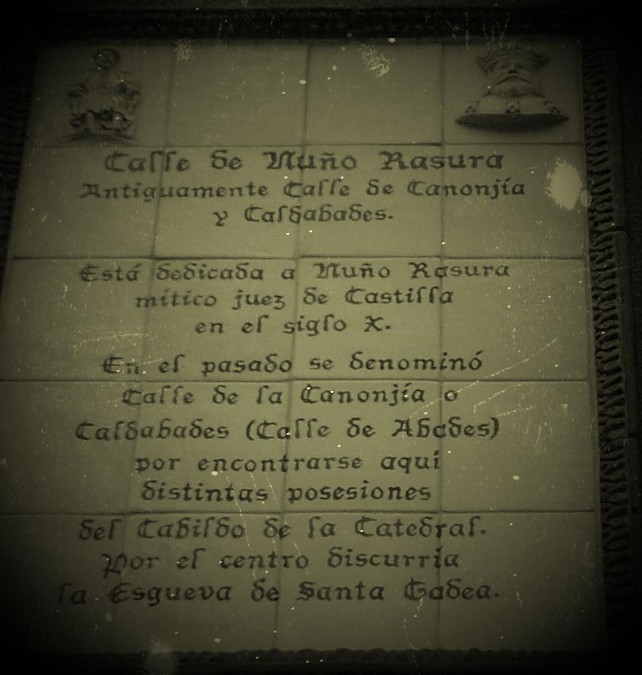 Calle de Nuño Rasura
Antiguamente Calle de Canonjía
y Caldabades.
Está dedicada a Nuño Rasura
mítico juez de Castilla
en el siglo X.
En el pasado se denominó
Calle de la Canonjía o
Caldabades (Calle de Abades)
por encontrarse aquí
distintas posesiones
del Cabildo de la Catedral.
Por el centro discurría
la Esgueva de Santa Gadea.